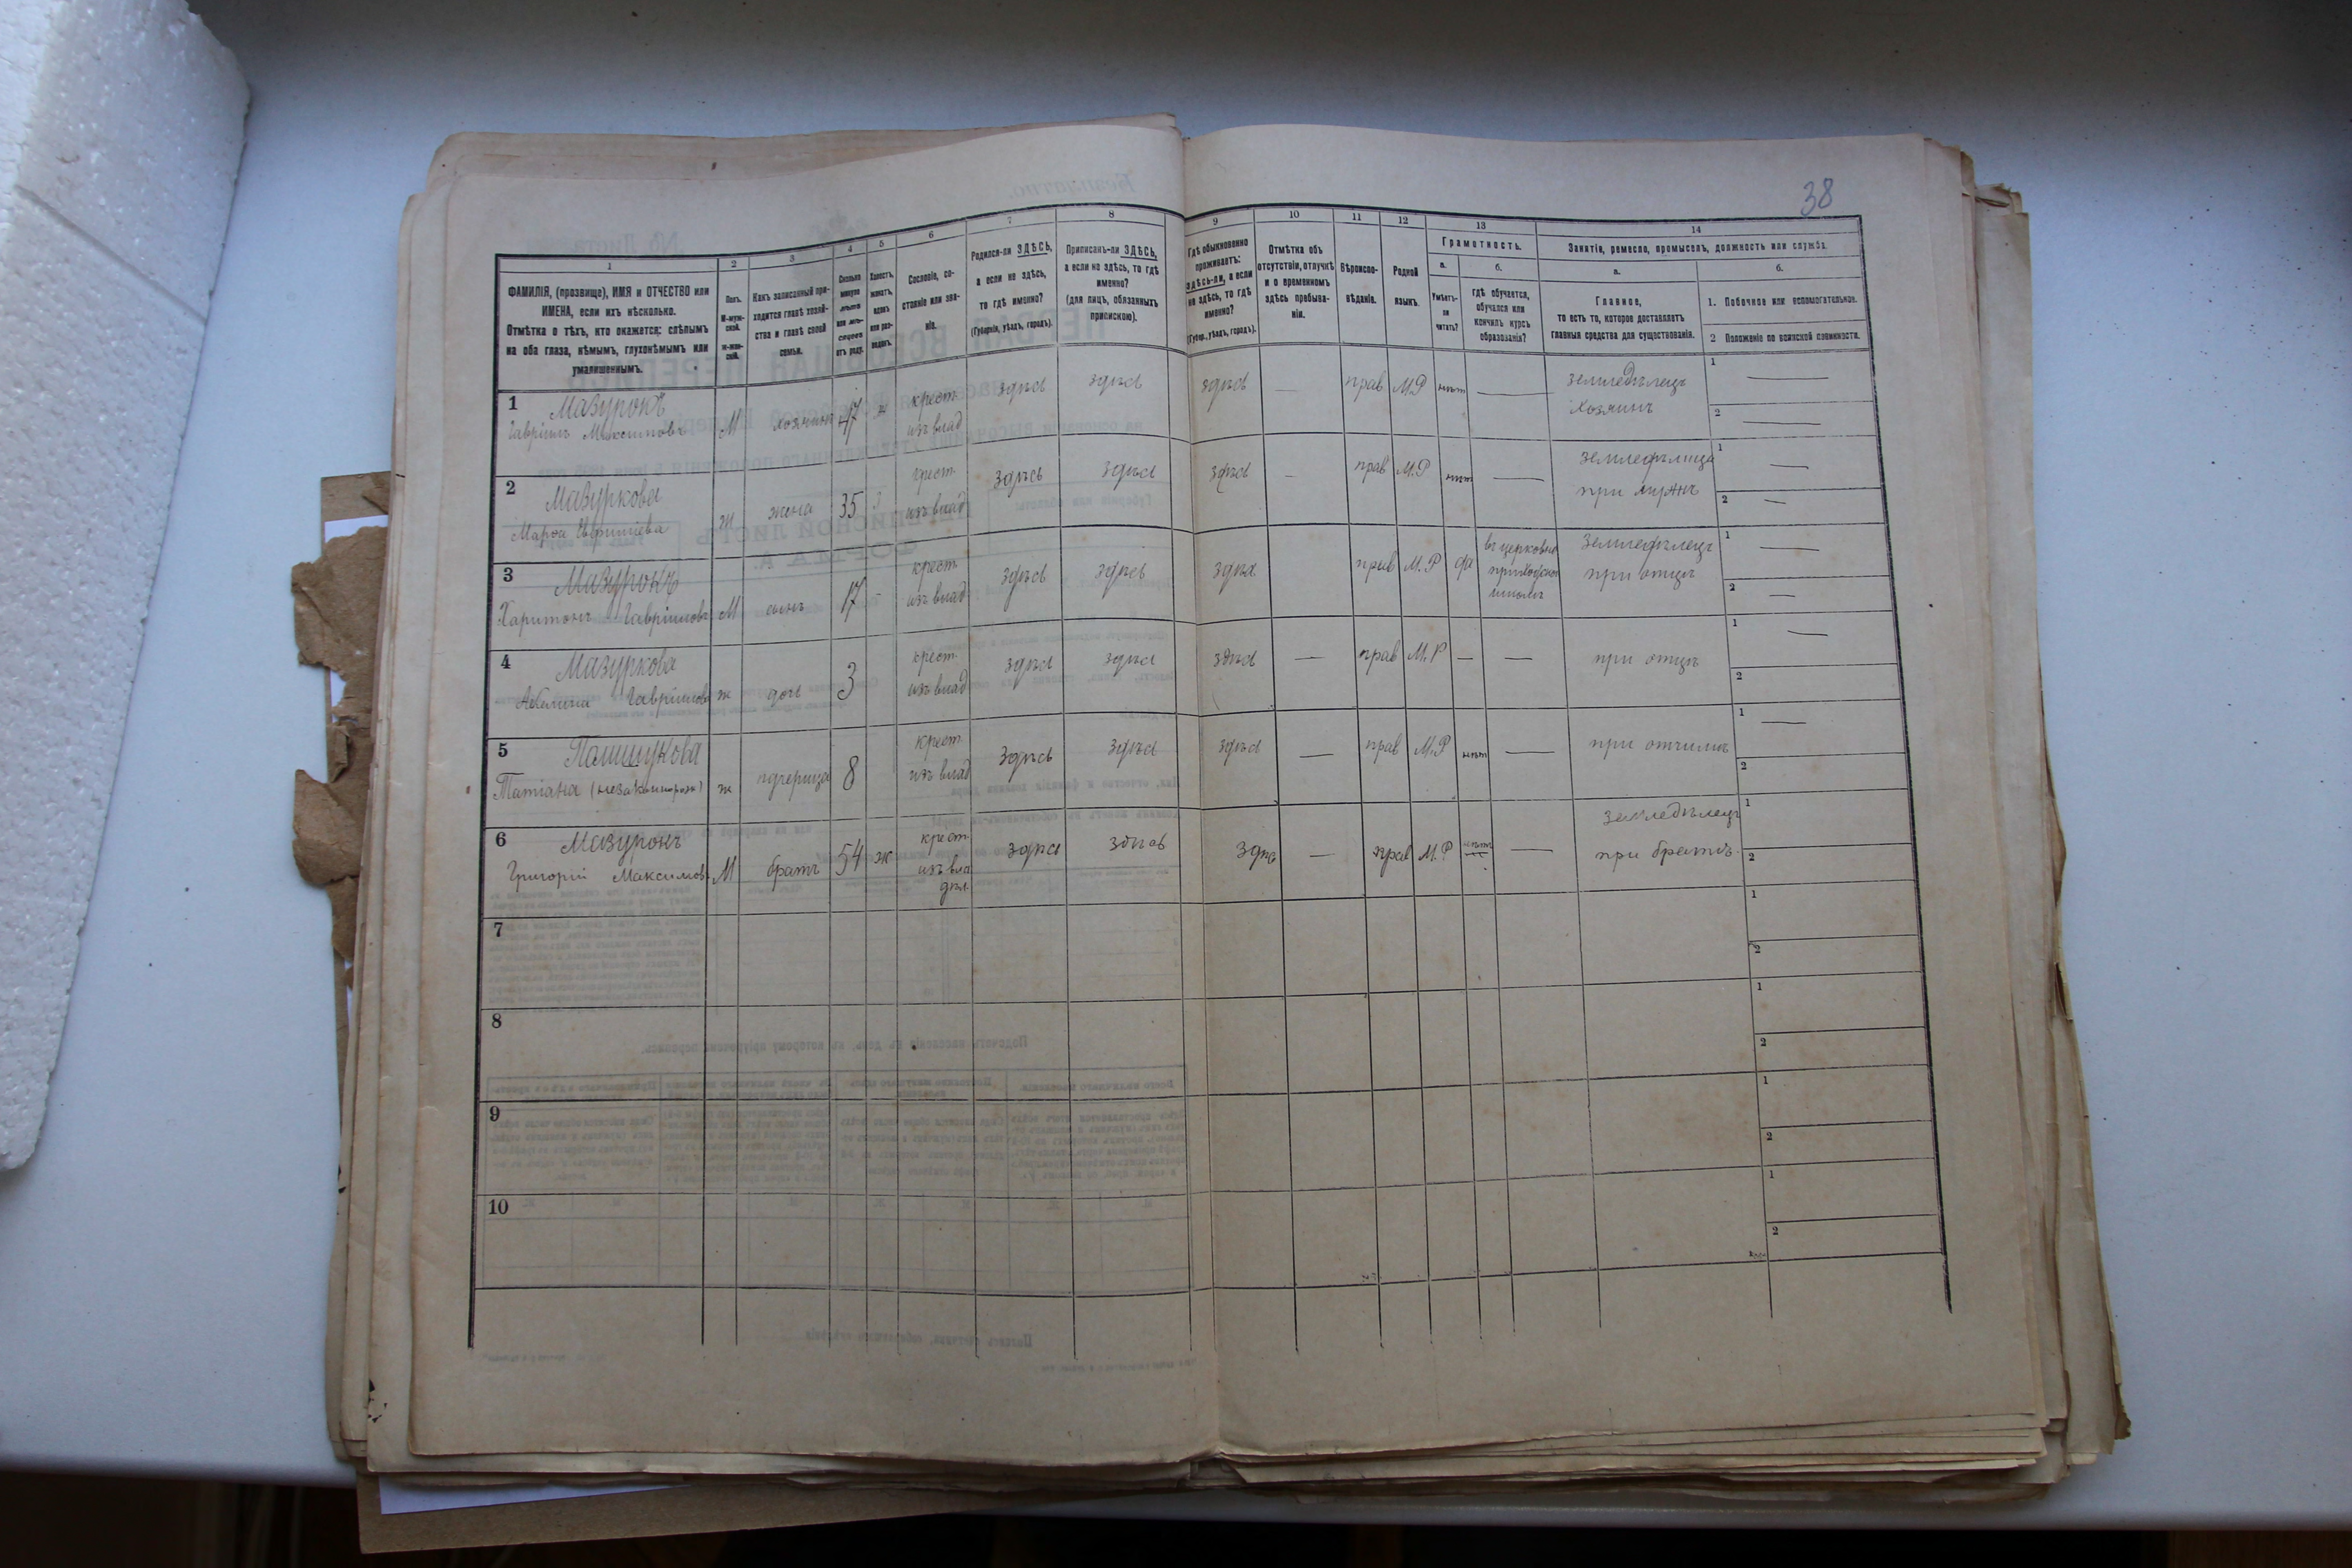 38
1
2
3
4
5
6
7
8
9
10
11
12
13
14
ФАМИЛІЯ, (прозвище), ИМЯ и ОТЧЕСТВО или
ИМЕНА, если ихъ нѣсколько.
Отмѣтка о тѣхъ, кто окажется: слѣпымъ
на оба глаза, нѣмымъ, глухонѣмымъ или
умалишеннымъ.
Полъ.
М-муж-
ской.
Ж-жен-
скій.
Какъ записанный при-
ходится главѣ хозяй-
ства и главѣ своей
семьи.
Сколько
минуло
лѣтъ
или мѣ-
сяцевъ
отъ роду.
Холостъ,
женатъ,
вдовъ
или раз-
веденъ.
Сословіе, со-
стояніе или зва-
ніе.
Родился-ли ЗДѢСЬ,
а если не здѣсь,
то гдѣ именно?
(Губернія, уѣздъ, городъ).
Приписанъ-ли ЗДѢСЬ,
а если не здѣсь, то гдѣ
именно?
(для лицъ, обязанныхъ
припискою).
Гдѣ обыкновенно
проживаетъ:
здѣсь-ли, а если
не здѣсь, то гдѣ
именно?
(Губер., уѣздъ, городъ).
Отмѣтка объ
отсутствіи, отлучкѣ
и о временномъ
здѣсь пребыва-
ніи.
Вѣроиспо-
вѣданіе.
Родной
языкъ.
Грамотность.
а.
Умѣетъ-
ли
читать?
б.
гдѣ обучается,
обучался или
кончилъ курсъ
образованія?
Занятіе, ремесло, промыселъ, должность или служба.
а.
Главное,
то есть то, которое доставляетъ
главныя средства для существованія.
б.
1. Побочное или вспомогательное.
2 Положеніе по воинской повинности.
1 Мазурокъ
Гавріилъ Максимовъ М хозяинъ 47 ж крест. изъ влад здѣсь здѣсь здѣсь — прав М.Р нѣтъ — земледѣлецъ хозяинъ 1 — 2 —
2 Мазуркова
Марѳа ж жена 35 крест. изъ влад здѣсь здѣсь здѣсь — прав М.Р нѣтъ — земледѣлица при мужѣ 1 — 2 —
3 Мазурокъ
Харитонъ Гавріиловъ М сынъ 17 - крест. изъ влад здѣсь здѣсь здѣсь прав М.Р да въ церковно приходской школѣ земледѣлецъ при отцѣ 1 — 2 —
4 Мазуркова
Гавріилова ж дочь 3 крест. изъ влад здѣсь здѣсь здѣсь — прав М.Р — — при отцѣ 1 — 2
5 Татіана ж пдчерица 8 крест. изъ влад здѣсь здѣсь здѣсь — прав М.Р нѣтъ — при отчимѣ 1 — 2
6 Мазурокъ
Григорій Максимовъ М братъ 54 ж крест. изъ вла дѣл. здѣсь здѣсь здѣсь — прав М.Р нѣтъ — земледѣлецъ при братѣ 1 2
7 1 2
8 1 2
9 1 2
10 1 2